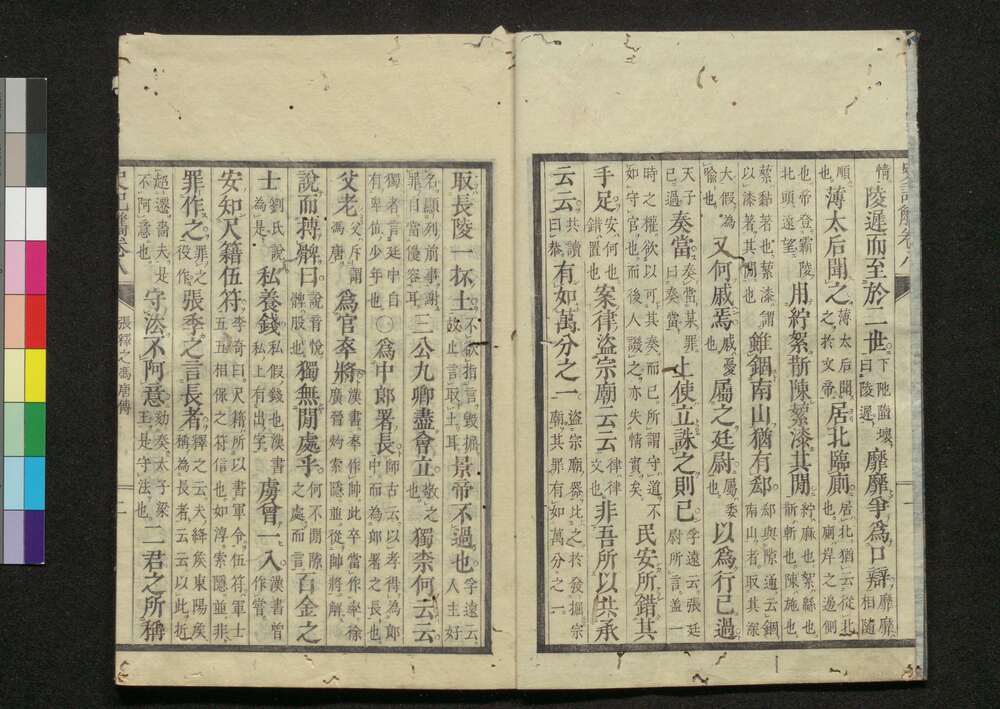 情陵遲而至於二世下陁崩壞曰陵遲靡靡爭為口辯靡靡相隨
順也薄太后聞之薄太后聞之於文帝居北臨廁居北猶云從北也廁岸之邊側
也帝登霸陵北頭遠望用紵絮斮陳蔾漆其閒紵麻也絮緜也斮斬也陳施也
蔾黏著也蔾漆謂以漆著其閒也雖錮南山猶有郄郄與隙通云錮南山者取其深
大假為喻也又何戚焉戚憂也屬之廷尉屬委也以為行已過
天子已過奏當奏當某罪曰奏當上使立誅之則已李遠云張廷尉所言蓋一
時之權欲以可其奏而已所謂守道不如守官也而後人譏之亦失情實矣民安所錯其
手足安何也錯置也案律盜宗廟云云律律文也非吾所以共承
云云共讀曰恭有如萬分之一盜宗廟器比之於發掘宗廟其罪有如萬分之一
取長陵一抔土不欲指言毀掘故止言取土耳景帝不過也李遠云人主好
名顯列前事謝罪自當優容耳三公九卿盡會立敬之也獨柰何云云
獨者言廷中自有卑位少年也〇為中郎署長師古云以孝得為郎中而為郎署之長也
父老父斥謂馮唐為官卒將漢書卒作帥此卒當作率徐廣晉灼索隱並從帥將解
說而搏髀曰說音悅髀股也獨無閒處乎何不閒隙之處而言百金之
士劉氏說為是私養錢私假錢也漢書私上有出字虜曾一入漢書曾作嘗
安知尺籍伍符李奇曰尺籍所以書軍令伍符軍士五五相保之符信也如淳索隱並非
罪作之罪之役作張季之言長者釋之云夫絳矦東陽矦稱為長者云云以此近
極遷嗇夫是不阿意也守法不阿意劾奏太子梁王是守法也二君之所稱
張釋之馮唐傳